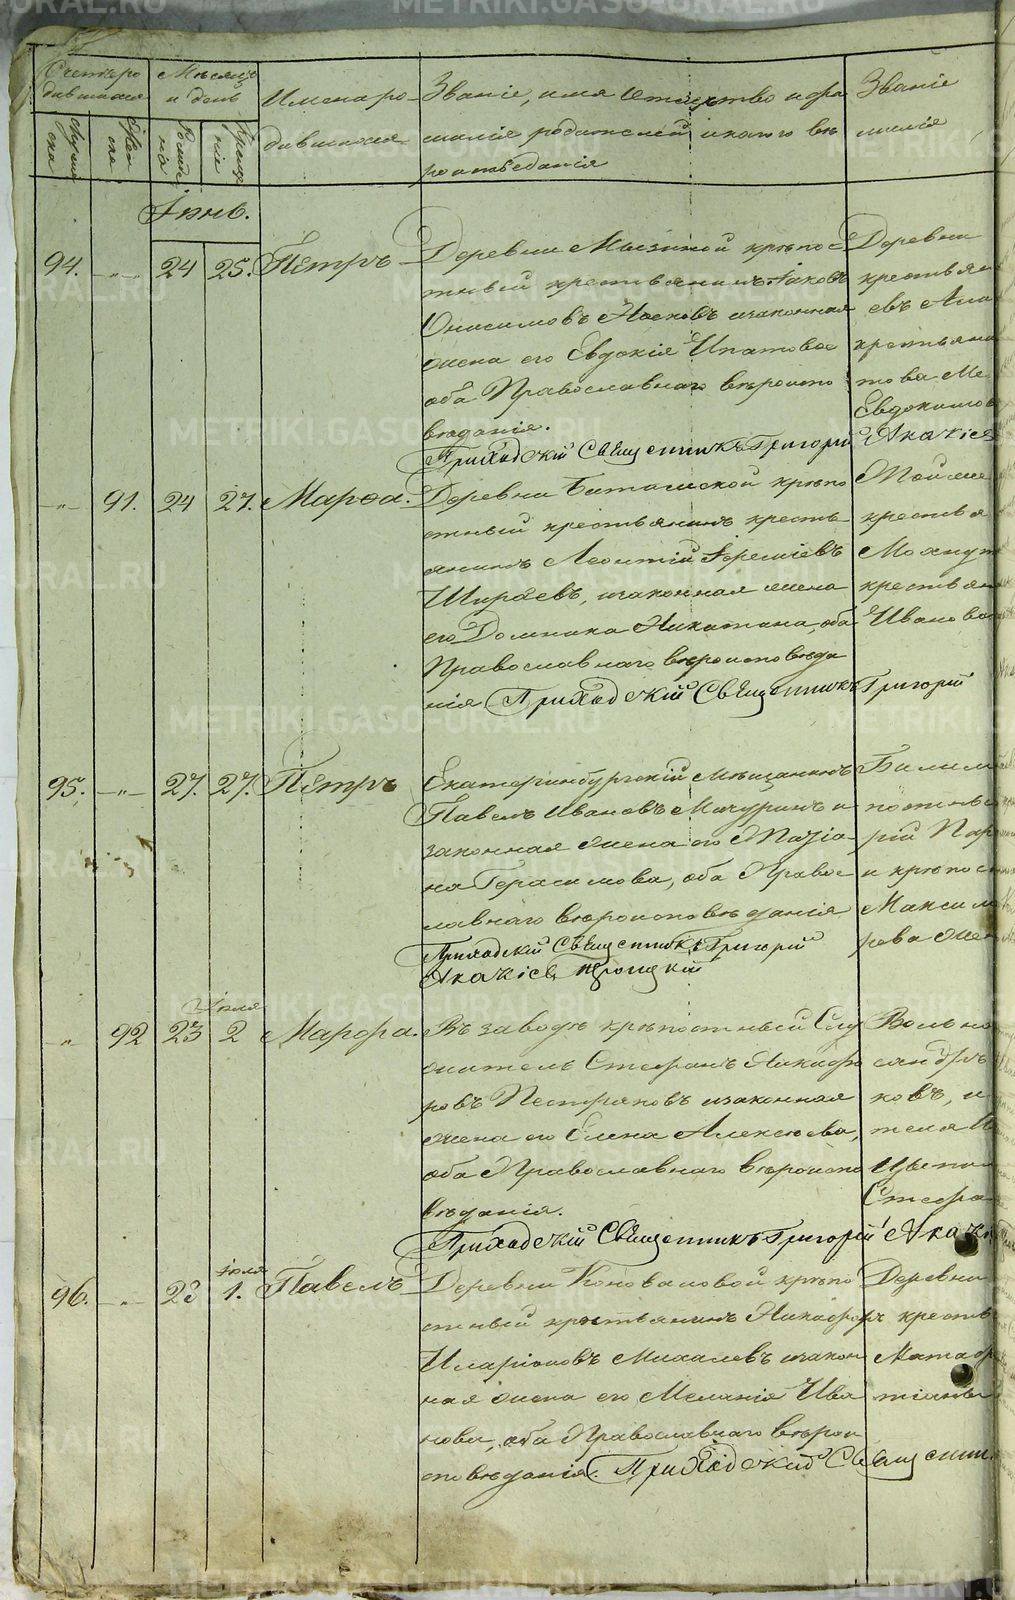 Счетъ ро
дившихся
Мѣсяцъ
и день
Имена ро-
дившихся
Званіе, имя отчество и фа
милія родителей, и какого вѣ
роисповѣданія
Званіе
милія
муже
ска
жен
ска
рожде
нія
креще
нія
Іюнь.
94. —„— 24 25. Петръ
Деревни Мызиной крѣпос
тный крестьянинъ Іаковъ
Онисимовъ Носковъ изаконная
жена его Евдокія Ипатова
оба Православнаго вѣроиспо
вѣданія.
Приходскій Священникъ Григорій
Деревни
крестьян
евъ
крестьяни
това Ме
Евдокимов
Акакіев
—„— 91. 24 27. Марѳа.
Деревни Битимской крѣпо
стный крестьянинъ кресть
янинъ Леонтій Іереміевъ
Ширяевъ, изаконная жена
его Домника Никитина, оба
Православнаго вѣроисповѣда
нія Приходскій Священникъ Григорій
Той же
крестья
крестьян
Иванова
95. —„— 27. 27. Петръ
Екатеринбургскій Мѣщанинъ
Павелъ Ивановъ Мичуринъ и
законная жена его Татіа
на Герасимова, оба Правос
лавнаго вѣроисповѣданія
Приходскій Священникъ Григорій
Акакіев Троицкій
Билим
постны
рій Пар
и крѣпос
Максим
рова жен
„ 92 23 Іюля 2 Марѳа.
Въ заводѣ крѣпостный Слу
житель Стефанъ Никифо
ровъ Пестряковъ изаконная
жена его Елена Алексѣева,
оба Православнаго вѣроиспо
вѣданія.
Приходскій Священникъ Григорій Акакі
Вольно
сяндръ
ковъ, и
теля И
Цыпи
Стефа
96. —„— 23 Іюля 1. Павелъ
Деревни Коноваловой крѣпо
стный крестьянинъ Никифоръ
Иларіоновъ Михалевъ изакон
ная жена его Меланія Ива
нова, оба Православнаго вѣрои
сповѣданія. Приходскій Священни
Деревни
крестья
METRIKI.GASO-URAL.RU